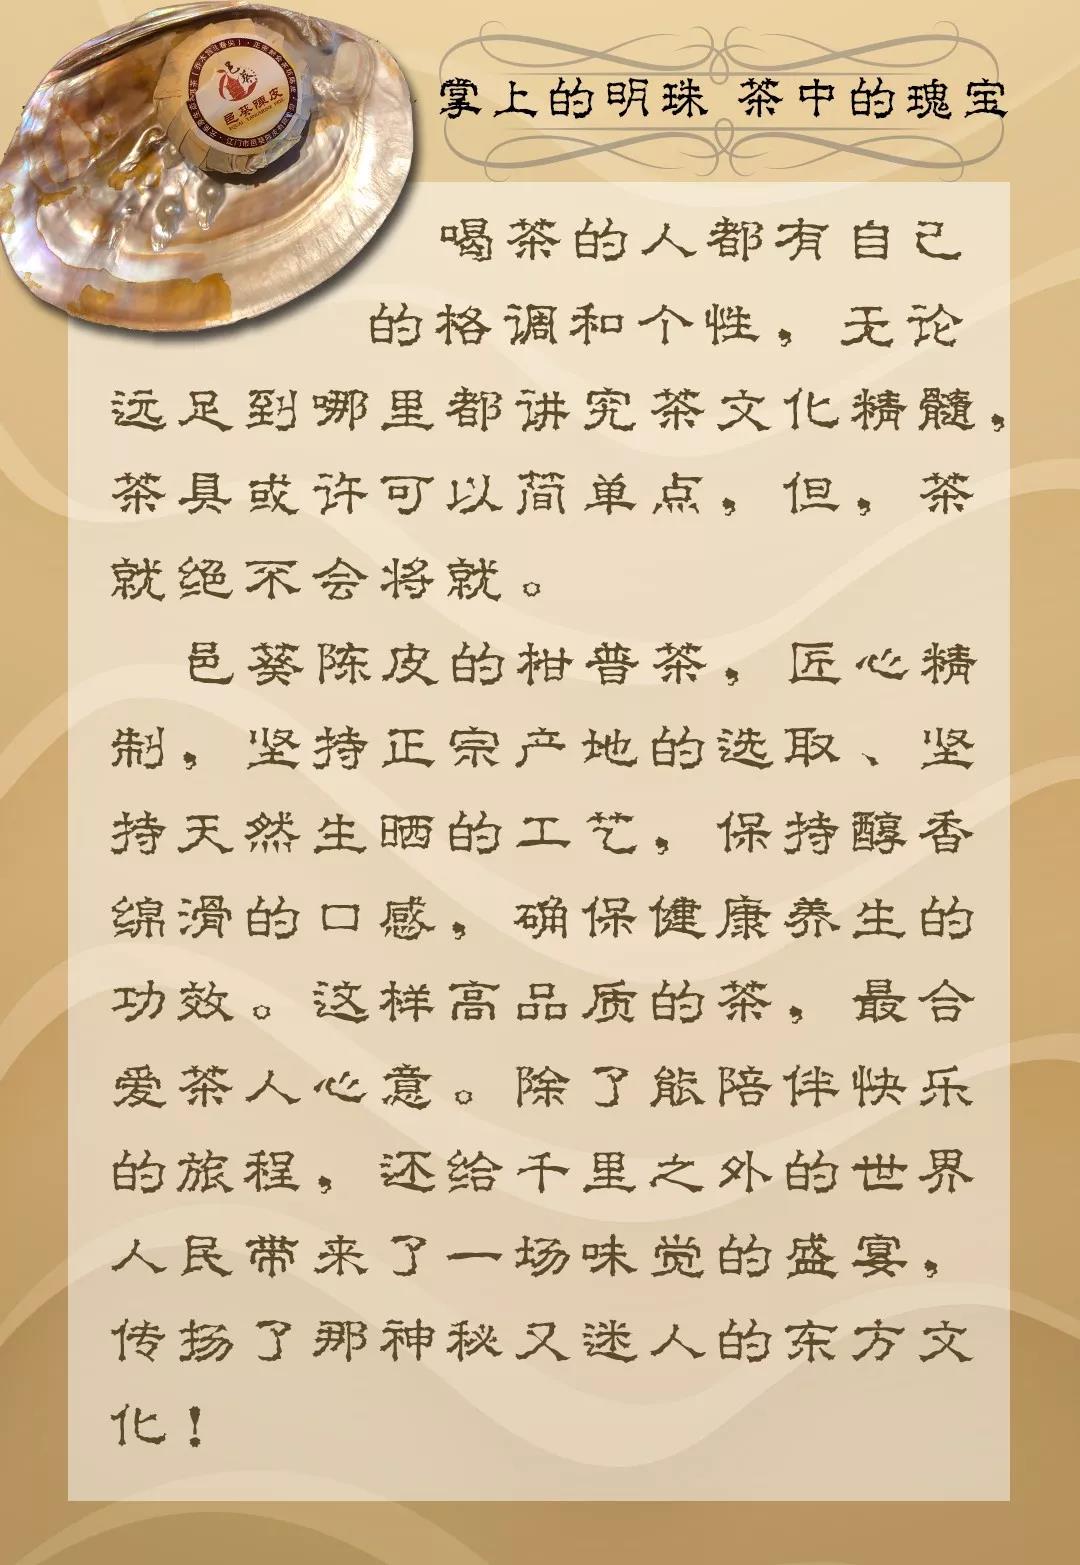 掌上的明珠 茶中的瑰宝
邑葵
邑葵陳皮
喝茶的人都有自己
的格调和个性，无论
远足到哪里都讲究茶文化精髓，
茶具或许可以简单点，但，茶
就绝不会将就。
邑葵陈皮的柑普茶，匠心精
制，坚持正宗产地的选取、坚
持天然生晒的工艺，保持醇香
绵滑的口感，确保健康养生的
功效。这样高品质的茶，最合
爱茶人心意。除了能陪伴快乐
的旅程，还给千里之外的世界
人民带来了一场味觉的盛宴，
传扬了那神秘又迷人的东方文
化！